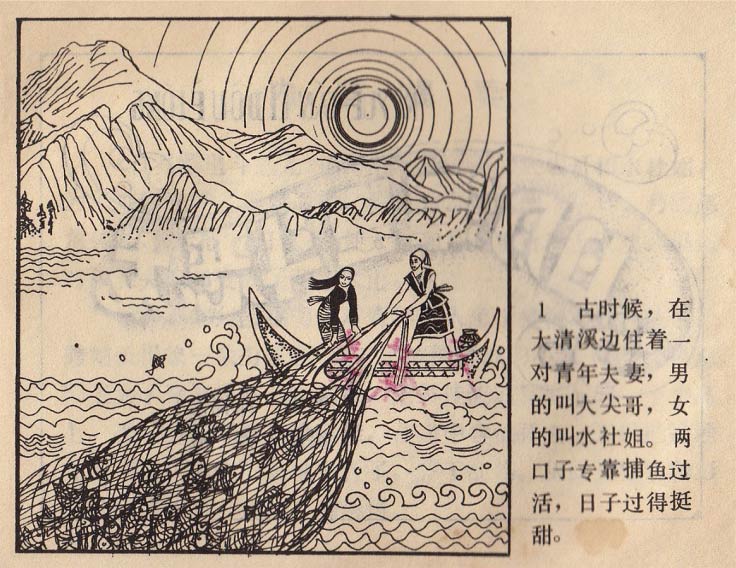 1 古时候，在
大清溪边住着一
对青年夫妻，男
的叫大尖哥，女
的叫水社姐。两
口子专靠捕鱼过
活，日子过得挺
甜。